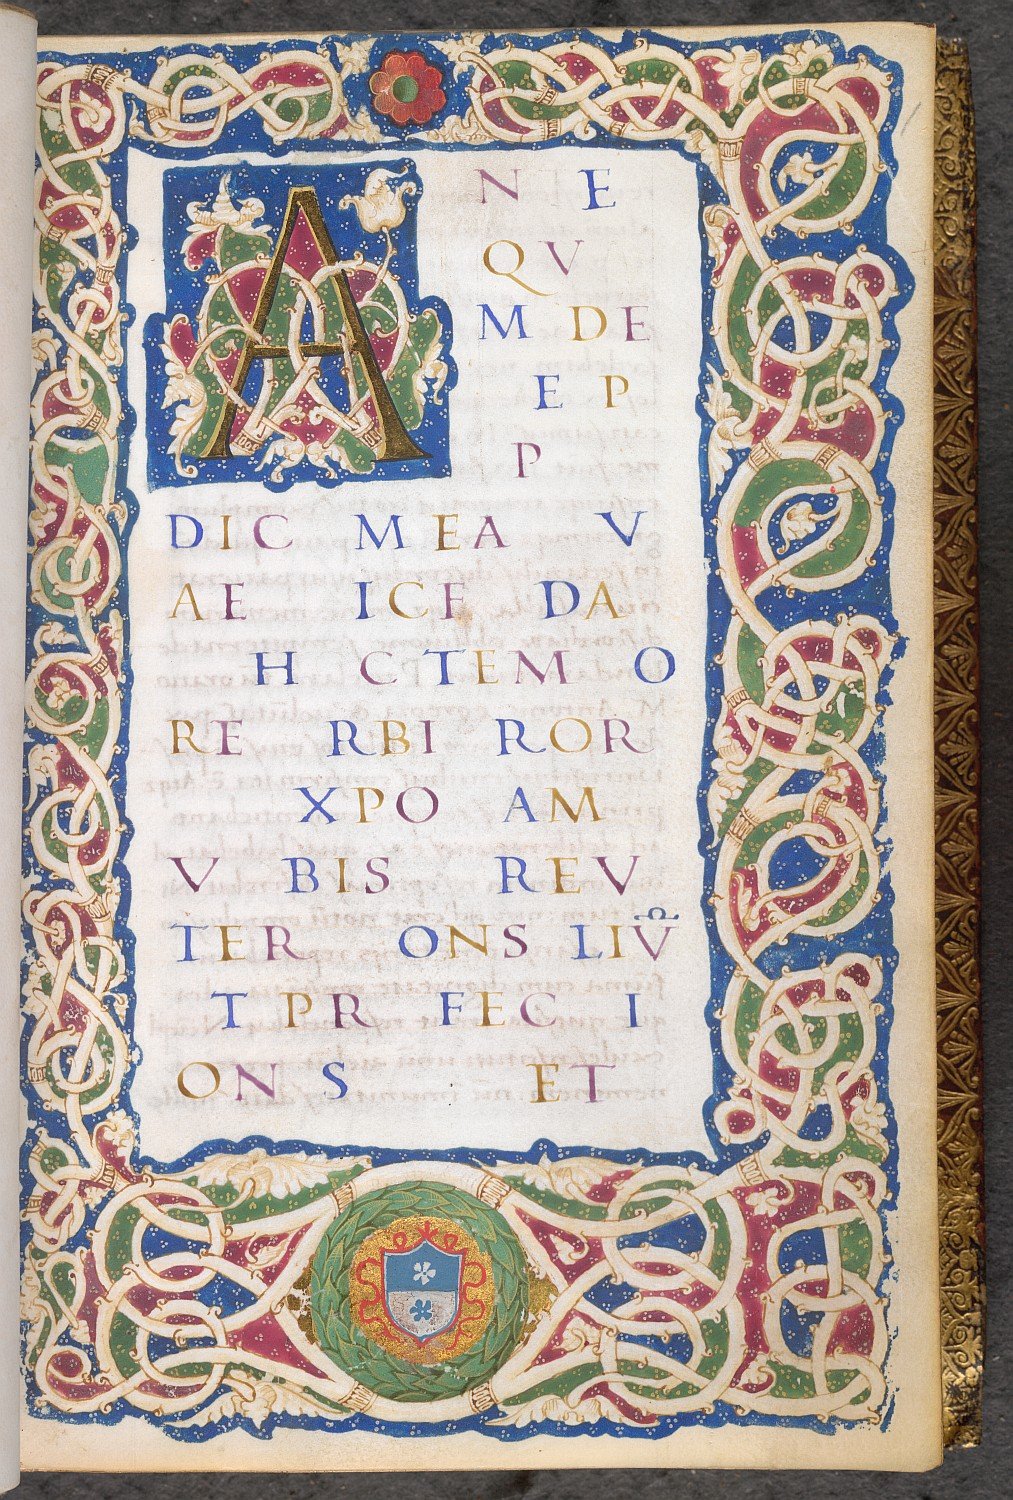 A N E
QV
M DE
E P
P
DIC MEA V
AE ICE DA
H CTEM O
RE RBI ROR
XPO AM
V BIS REV
TER ONS LIV̄
T PR FEC I
ON S ET